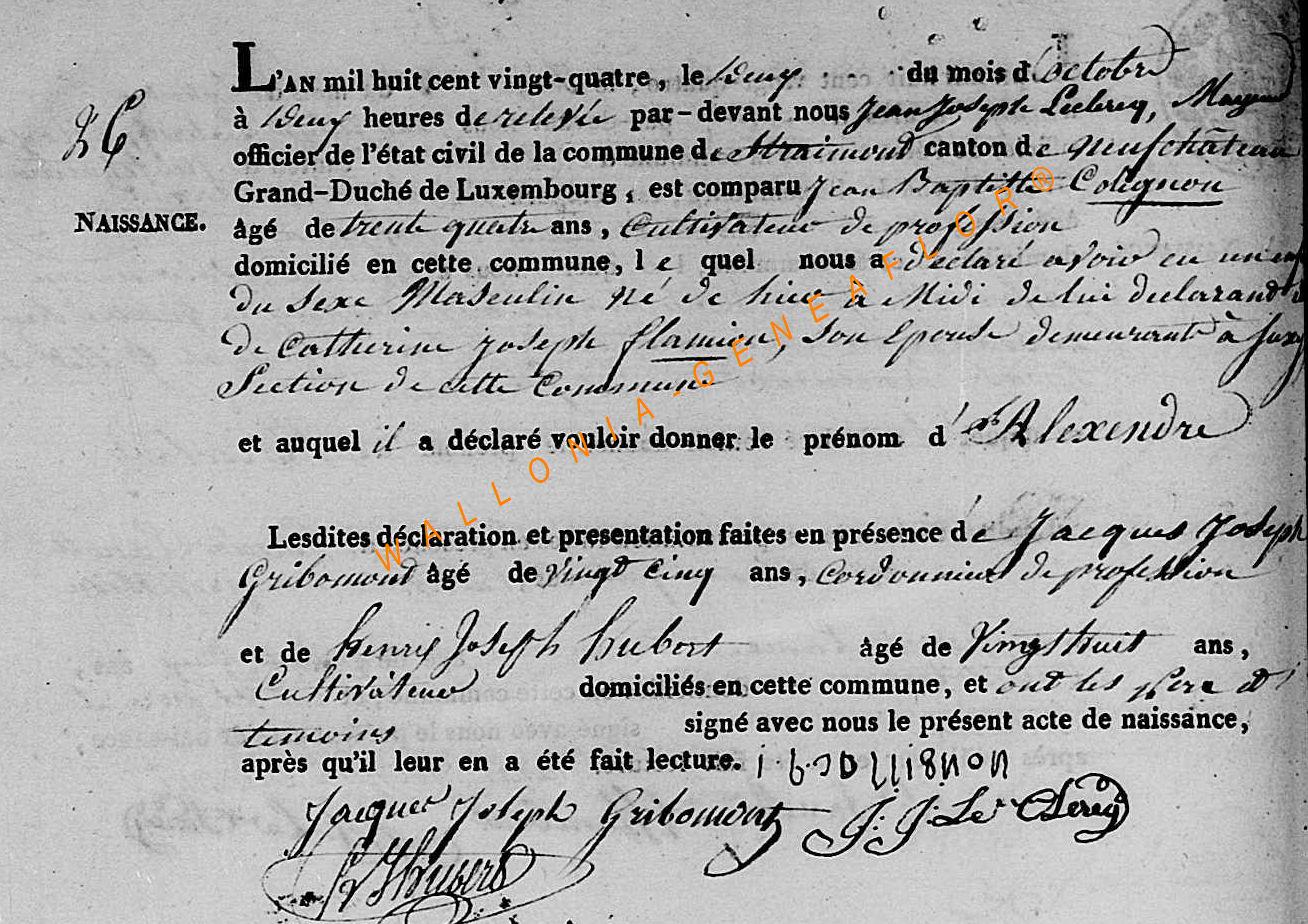 L'AN mil huit cent vingt-quatre, le deux du mois d'octobre
26
à deux heures de relevée par-devant nous Jean Joseph Leclercq, Mayeur
officier de l'état civil de la commune de Straimont canton de neufchâteau
Grand-Duché de Luxembourg, est comparu Jean Baptiste Colignon
NAISSANCE.
âgé de trente quatre ans, Cultivateur de profession
domicilié en cette commune, le quel nous a déclaré avoir eu un
du sexe Masculin né de hier à Midi de lui declarand
de Catherine joseph flamion, son Epouse demeurante à
Section de cette Commune
et auquel il a déclaré vouloir donner le prénom d'Alexendre
Lesdites déclaration et presentation faites en présence de Jacques Joseph
Gribomont âgé de vingt Cinq ans, Cordonnier de profession
et de henry Joseph hubert âgé de Vingthuit ans,
Cultivateur domiciliés en cette commune, et ont les pere et
temoins signé avec nous le présent acte de naissance,
après qu'il leur en a été fait lecture. i.b.collignon
Jacques Joseph Gribomont J: J: Le Clercq
hubert
WALLONIA-GENEAFLOR®